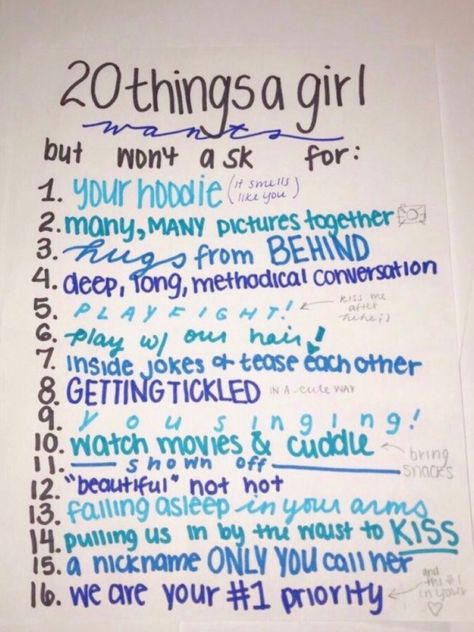 20 things a girl
wants
but won't ask for:
1. your hoodie (it smells like you)
2. many, MANY pictures together
3. hugs from BEHIND
4. deep, long, methodical conversation
5. PLAYFIGHT! kiss me after hehe ;)
6. play w/ our hair!
7. inside jokes & tease each other
8. GETTING TICKLED IN A-cute WAY
9. you singing!
10. watch movies & cuddle bring snacks
11. shown off
12. "beautiful" not hot
13. falling asleep in your arms
14. pulling us in by the waist to KISS
15. a nickname ONLY YOU call her
16. we are your #1 priority and the #1 in your ♡